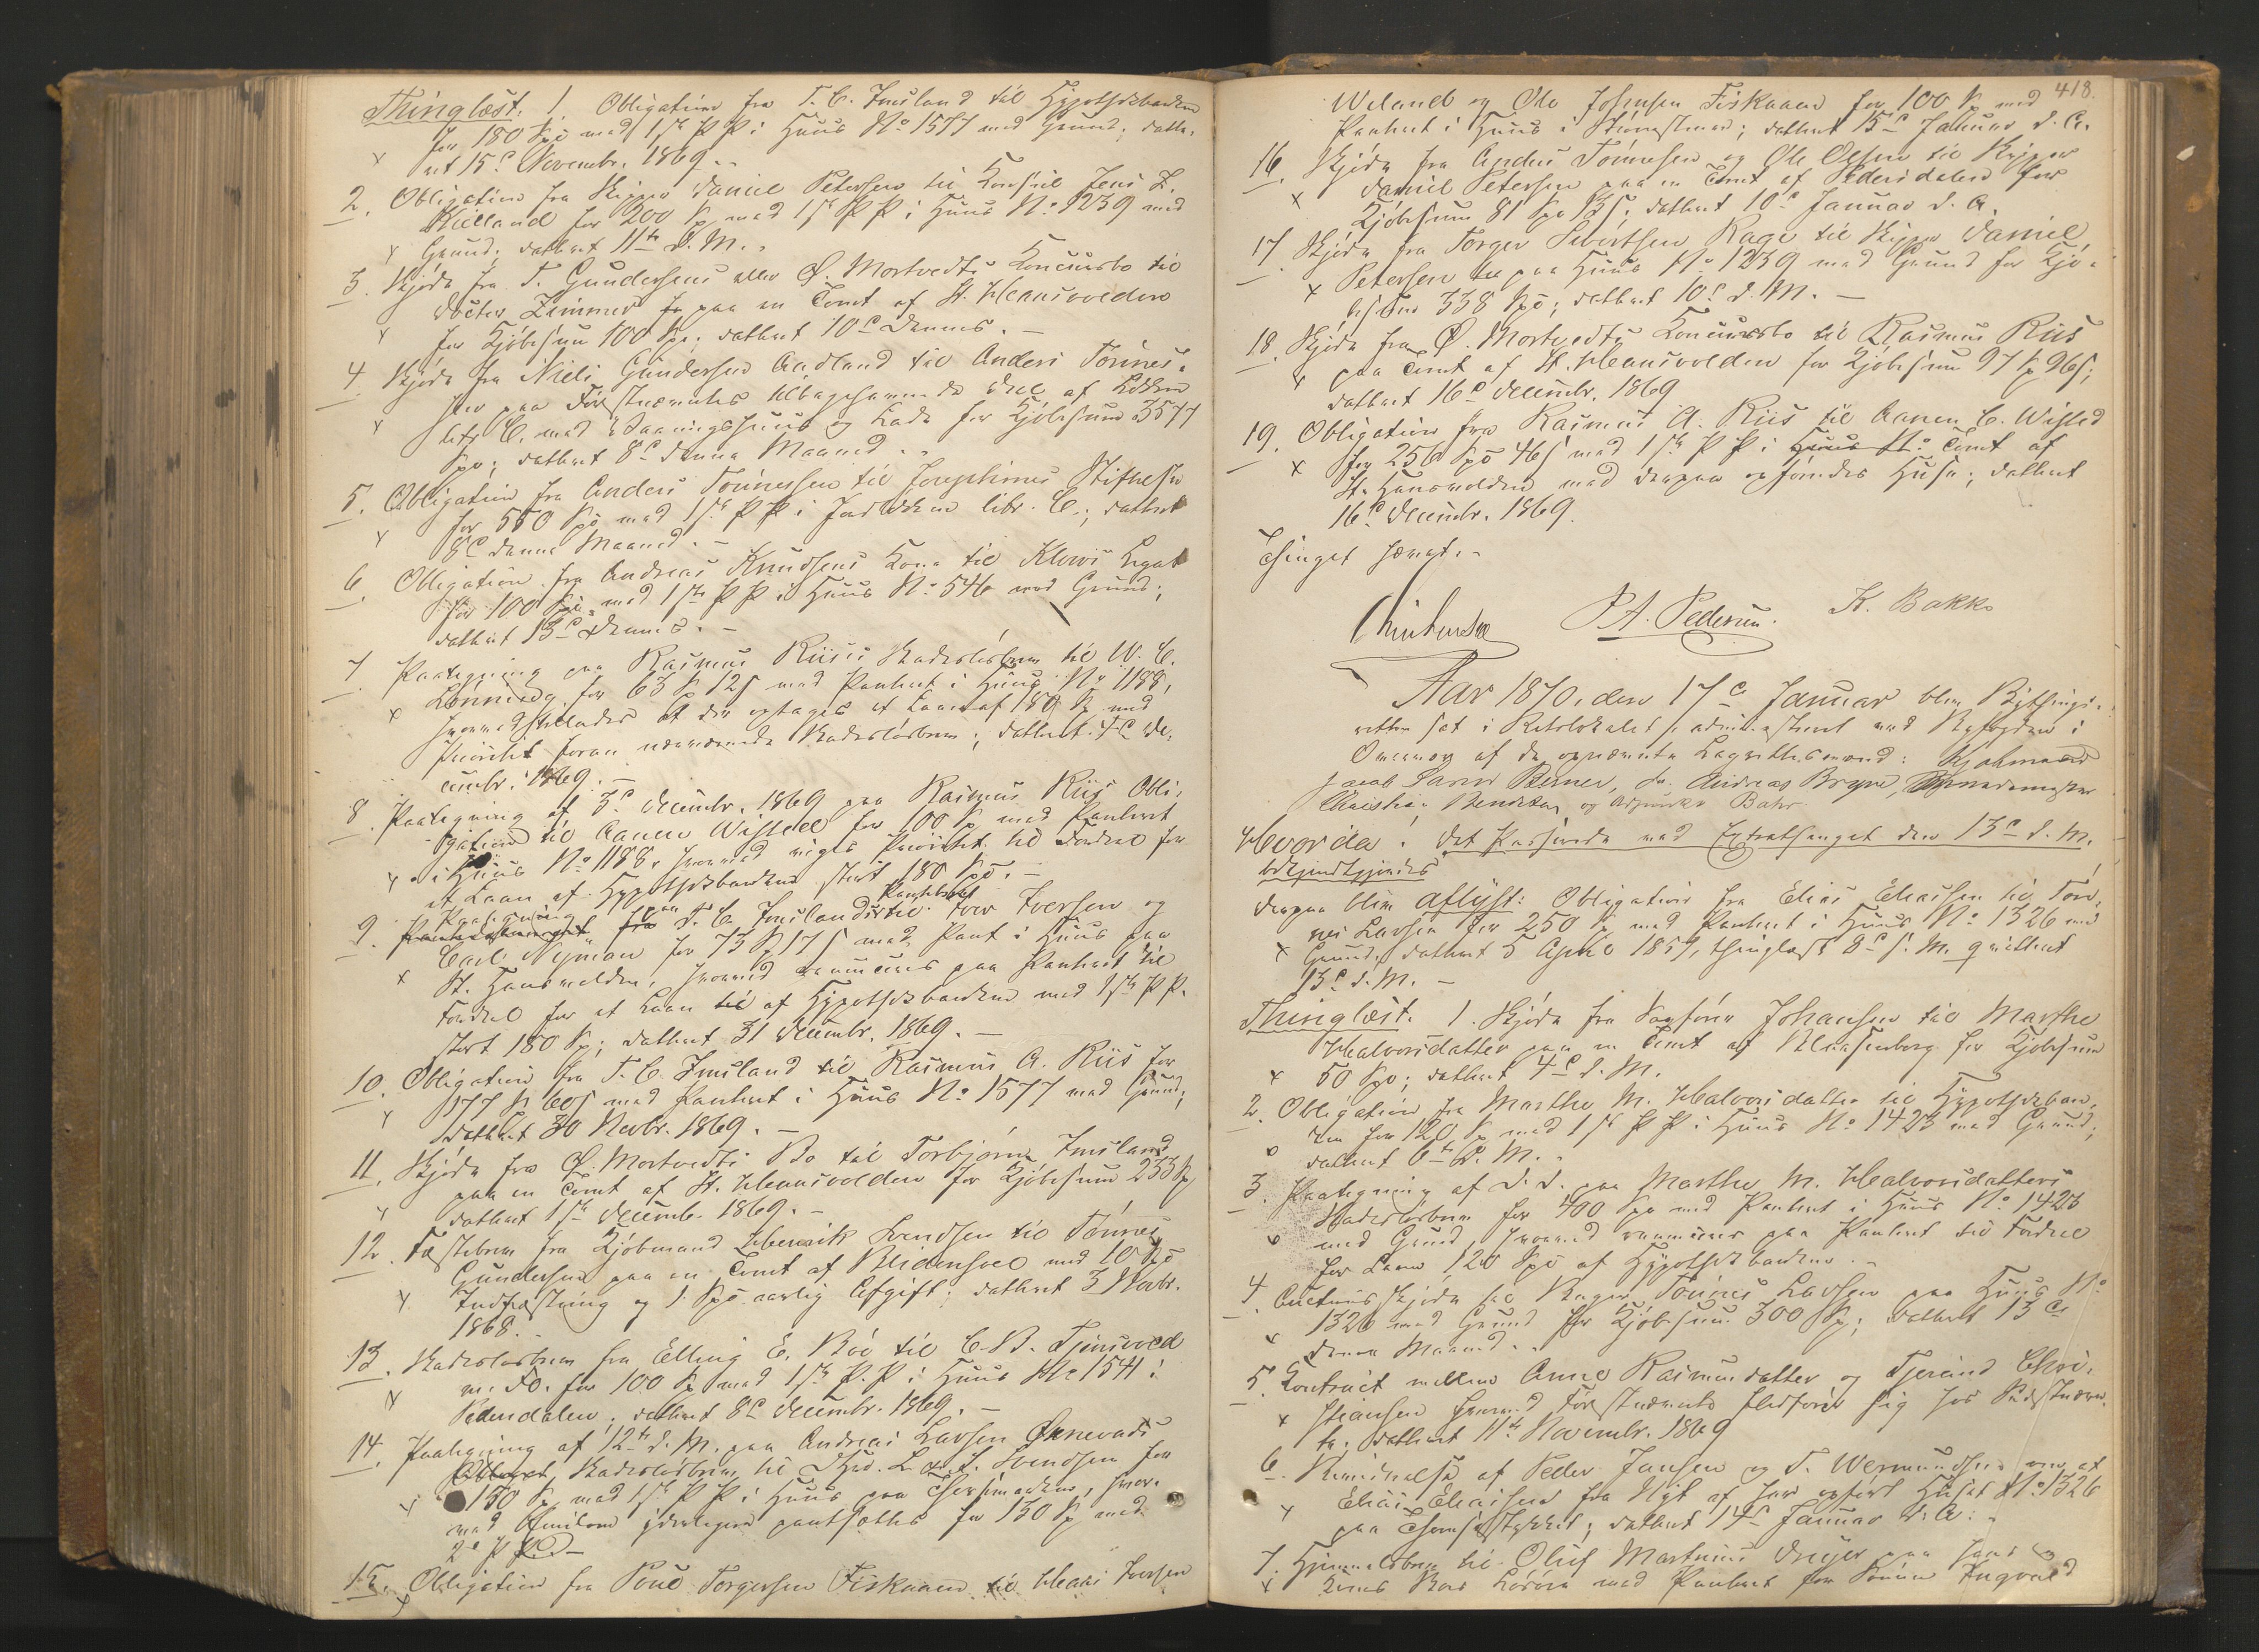 Thinglæst. 1. Obligation fra T. C. Imsland til Hypothekbanken
for 180 Spd med 1ste P P i Huus No 1577 med Grund; date-
ret 15de Novembr. 1869.
2. Obligation fra Skipper Daniel Petersen til Konsul Jens Z.
Kielland for 200 Sp med 1ste P P i Huus No 1239 med
Grund; dateret 11te d. M.
3. Skjøde fra T. Gundersens eller Ø. Mortvedts Koncursbo til
Doctor Zimmer paa en Tomt af St. Hansvolden
for Kjøbesum 100 Spd; dateret 10de Dennes.
4. Skjøde fra Niels Gundersen Aadland til Anders Tønnes-
sen paa Førstnævntes tilbageværende Deel af Løkken
litr. C. med Vaaningshuus og Lade for Kjøbesum 3577
Spd; dateret 8de denne Maaned.
5. Obligation fra Anders Tønnessen til Josephines Stiftelse
for 550 Spd med 1ste P P i Jordløkken litr. C.; dateret
8de denne Maaned.
6. Obligation fra Andreas Knudsens Kone til Klows Legat
for 100 Spd med 1ste P P i Huus No 546 med Grund;
dateret 13de Dennes.
7. Paategning paa Rasmus Riises Skadesløsbrev til W. C.
Lønning for 63 Sp 12 s med Panteret i Huus No 1188,
hvorved tillades at der optages et Laan af 180 Sp med
Prioritet foran nærværende Skadesløsbrev; dateret 4de De-
cembr. 1869.
8. Paategning af 3de Decembr. 1869 paa Rasmus Riis Obli-
gation til Aanen Wisted for 100 Sp med Panteret
i Huus No 1188, hvorved viges Prioritet til Fordeel for
et Laan af Hypothekbanken stort 180 Spd.
9. Paategning paa T. C. Imslands Pantebrev til Iver Iversen og
Carl Nyman for 73 Sp 17 s med Pant i Huus paa
St. Hansvolden, hvorved renunceres paa Panteret til
Fordeel for et Laan til af Hypothekbanken med 1ste P P.
stort 180 Sp; dateret 31 Decembr. 1869.
10. Obligation fra T. C. Imsland til Rasmus A. Riis for
177 Sp 60 s med Panteret i Huus No 1577 med Grund;
dateret 30 Novbr. 1869.
11. Skjøde fra Ø. Mortvedts Bo til Torbjørn Imsland
paa en Tomt af St. Hansvolden for Kjøbesum 233 Sp
dateret 1ste Decembr. 1869.
12. Fæstebrev fra Kjøbmand Henrik Svendsen til Tønnes
Gundersen paa en Tomt af Bleidensoel med 10 Spd
Indfæstning og 1 Spd aarlig Afgift; dateret 3 Novbr.
1868.
13. Skadesløsbrev fra Elling E. Bøe til C. B. Tjensvold
m. Fl. for 100 Sp med 1ste P. P i Huus No 1541 i
Pedersdalen; dateret 8de Decembr. 1869.
14. Paategning af 12te d. M. paa Andreas Larsen Ørnevads
Skadesløsbrev til L. S. Svendsen for
150 Sp med 1ste P P i Huus paa hvor-
ved yderligere pantsættes for 130 Sp med
2de P P.
15. Obligation fra Poul Torgersen Fiskaaen til Hans Iversen
418.
Weland og Ole Johnsen Fiskaaen for 100 Sp med
Panteret i Huus i dateret 15de Januar d. A.
16. Skjøde fra Anders Tønnesen og Ole Olsen til Skipper
Daniel Petersen paa en Tomt af Pedersdalen for
Kjøbesum 81 Spd dateret 10de Januar d. A.
17. Skjøde fra Torger Sivertsen Rage til Skipper Daniel
Petersen paa Huus No 1239 med Grund for Kjø-
besum 338 Spd; dateret 10de d. M.
18. Skjøde fra Ø. Mortvedts Koncursbo til Rasmus Riis
paa Tomt af St. Hansvolden for Kjøbesum 97 Sp 96 s;
dateret 16de Decembr. 1869
19. Obligation fra Rasmus A. Riis til Aanen C. Wisted
for 256 Spd 46 s med 1ste P P i Huus No Tomt af
St. Hansvolden med derpaa opførende Huse; dateret
16de Decembr. 1869.
Thinget hævet.
Christensen P. A. Pedersen. K. Bakke
Aar 1870, den 17de Januar blev Bythings-
retten sat i Retslokalet, administreret ved Byfogden i
Overvær af de opnævnte Laugrettesmænd: Kjøbmand
Jacob Saxe Berner, do. Andreas Bryne,
Christian Bendiksen og Bahr.
Hvorda: Det Passerede ved Extrathinget den 13de d. M.
bekjendtgjordes
Derpaa blev aflyst: Obligation fra Elias Eliassen til Tøn-
nes Larsen for 250 Sp med Panteret i Huus No 1326 med
Grund, dateret 5 April 1857, thinglæst 8de s. M. qvitteret
13de d. M.
Thinglæst. 1. Skjøde fra Johansen til Marthe
Halvorsdatter paa en Tomt af Blaasenborg for Kjøbesum
50 Spd; dateret 4de d. M.
2. Obligation fra Marthe M. Halvorsdatter til Hypothekban-
ken for 120 Sp med 1ste P P i Huus No 1423 med Grund;
dateret 6te d. M.
3. Paategning af d. D. paa Marthe M. Halvorsdatters
Skadesløsbrev for 400 Spd med Panteret i Huus No 1423
med Grund, hvorved renunceres paa Panteret til Fordeel
for Laan 120 Spd af Hypothekbanken.
4. Auctionsskjøde til Bager Tønnes Larsen paa Huus No
1326 med Grund for Kjøbesum 300 Sp; dateret 13de
denne Maaned.
5. Kontract mellem Anne Rasmusdatter og Tjerand Chri-
stiansen hvorved Førstnævnte fledfører sig hos Sidstnævn-
te, dateret 11te Novembr. 1869
6. af Peder Jansen og T. Wermundsen om at
Elias Eliassen fra Nyt af har opført Huset No 1326
paa dateret 14de Januar d. A.
7. Hjemmelsbrev til Oluf Martinius Dreyer paa hans
med Panteret for Ingvald